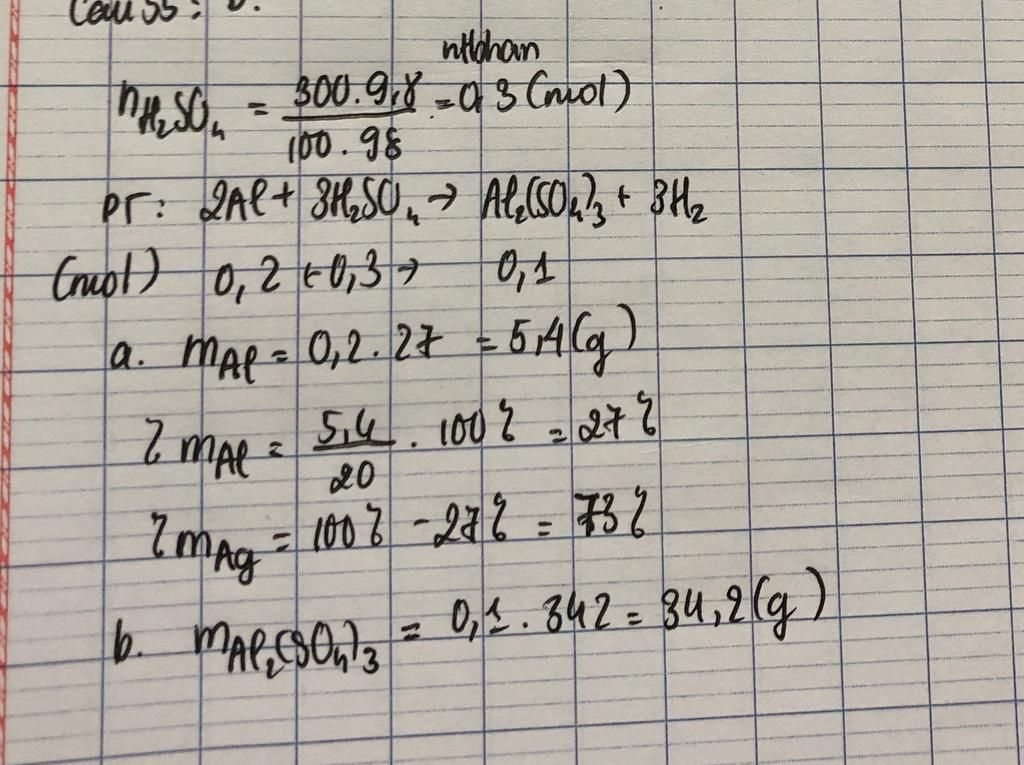 Câu 35:
n_H₂SO₄ = 300.9,8 / 100.98 = 0,3 (mol)
PT: 2Al + 3H₂SO₄ → Al₂(SO₄)₃ + 3H₂
(mol) 0,2 ← 0,3 → 0,1
a. m_Al = 0,2.27 = 5,4 (g)
% m_Al = 5,4 / 20 . 100% = 27%
% m_Ag = 100% - 27% = 73%
b. m_Al₂(SO₄)₃ = 0,1.342 = 34,2 (g)